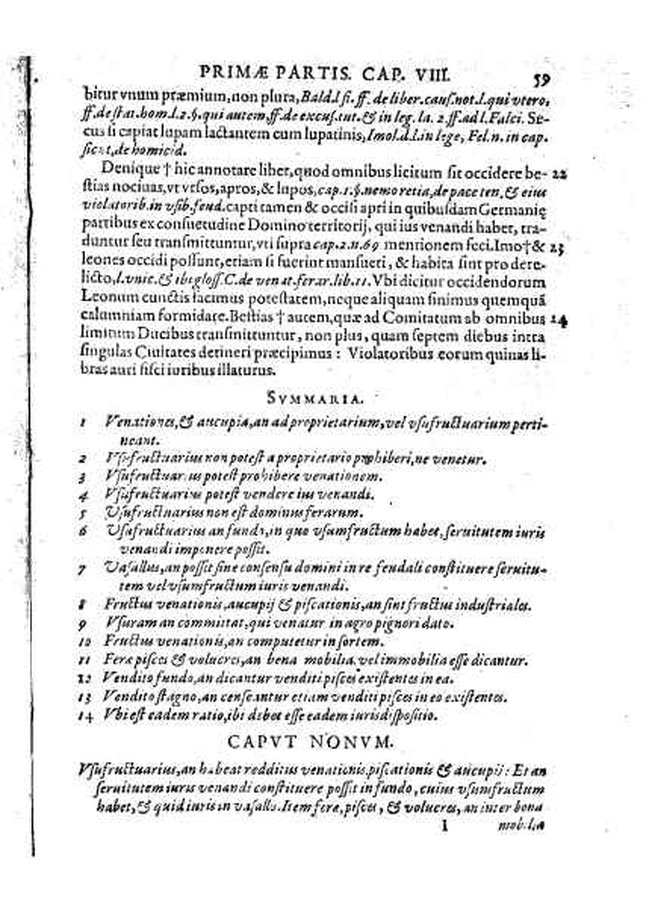 PRIMÆ PARTIS. CAP. VIII. 59
bitur vnum præmium, non plura, Bald. l. fi. ff. de liber. cauſ. not. l. qui vtero,
ff. de ſtat. hom. l. 2. §. qui autem, ff. de excuſ. tut. & in leg. la. 2. ff. ad l. Falci. Se-
cus ſi capiat lupam lactantem cum lupatinis, Imol. d. l. in lege, Fel. n. in cap.
ſicut, de homicid.
Denique † hic annotare liber, quod omnibus licitum ſit occidere be- 22
ſtias nociuas, vt vrſos, apros, & lupos, cap. 1. §. nemo retia, de pace ten. & eius
violatorib. in vſib. feud. capti tamen & occiſi apri in quibuſdam Germanię
partibus ex conſuetudine Domino territorij, qui ius venandi habet, tra-
duntur ſeu tranſmittuntur, vti ſupra cap. 2. n. 69 mentionem feci. Imo † & 23
leones occidi poſſunt, etiam ſi fuerint manſueti, & habita ſint pro dere-
licto, l. vnic. & ibi gloſſ. C. de venat. ferar. lib. 11. Vbi dicitur occidendorum
Leonum cunctis facimus poteſtatem, neque aliquam ſinimus quemquã
calumniam formidare. Beſtias † autem, quæ ad Comitatum ab omnibus 24
limitum Ducibus tranſmittuntur, non plus, quam ſeptem diebus intra
ſingulas Ciuitates detineri præcipimus: Violatoribus eorum quinas li-
bras auri fiſci iuribus illaturus.
SVMMARIA.
1 Venationes, & aucupia, an ad proprietarium, vel vſufructuarium perti-
neant.
2 Vſufructuarius non poteſt a proprietario prohiberi, ne venetur.
3 Vſufructuarius poteſt prohibere venationem.
4 Vſufructuarius poteſt vendere ius venandi.
5 Vſufructuarius non eſt dominus ferarum.
6 Vſufructuarius an fundo, in quo vſumfructum habet, ſeruitutem iuris
venandi imponere poſſit.
7 Vaſallus, an poſſit ſine conſenſu domini in re feudali conſtituere ſeruitu-
tem vel vſumfructum iuris venandi.
8 Fructus venationis, aucupij & piſcationis, an ſint fructus induſtriales.
9 Vſuram an committat, qui venatur in agro pignori dato.
10 Fructus venationis, an computetur in ſortem.
11 Feræ piſces & volucres, an bona mobilia vel immobilia eſſe dicantur.
12 Vendito fundo, an dicantur venditi piſces exiſtentes in ea.
13 Vendito ſtagno, an cenſeantur etiam venditi piſces in eo exiſtentes.
14 Vbi eſt eadem ratio, ibi debet eſſe eadem iuris diſpoſitio.
CAPVT NONVM.
Vſufructuarius, an habeat redditus venationis, piſcationis & aucupij: Et an
ſeruitutem iuris venandi conſtituere poſſit in fundo, cuius vſumfructum
habet, & quid iuris in vaſallo. Item feræ, piſces, & volucres, an inter bona
I mobilia